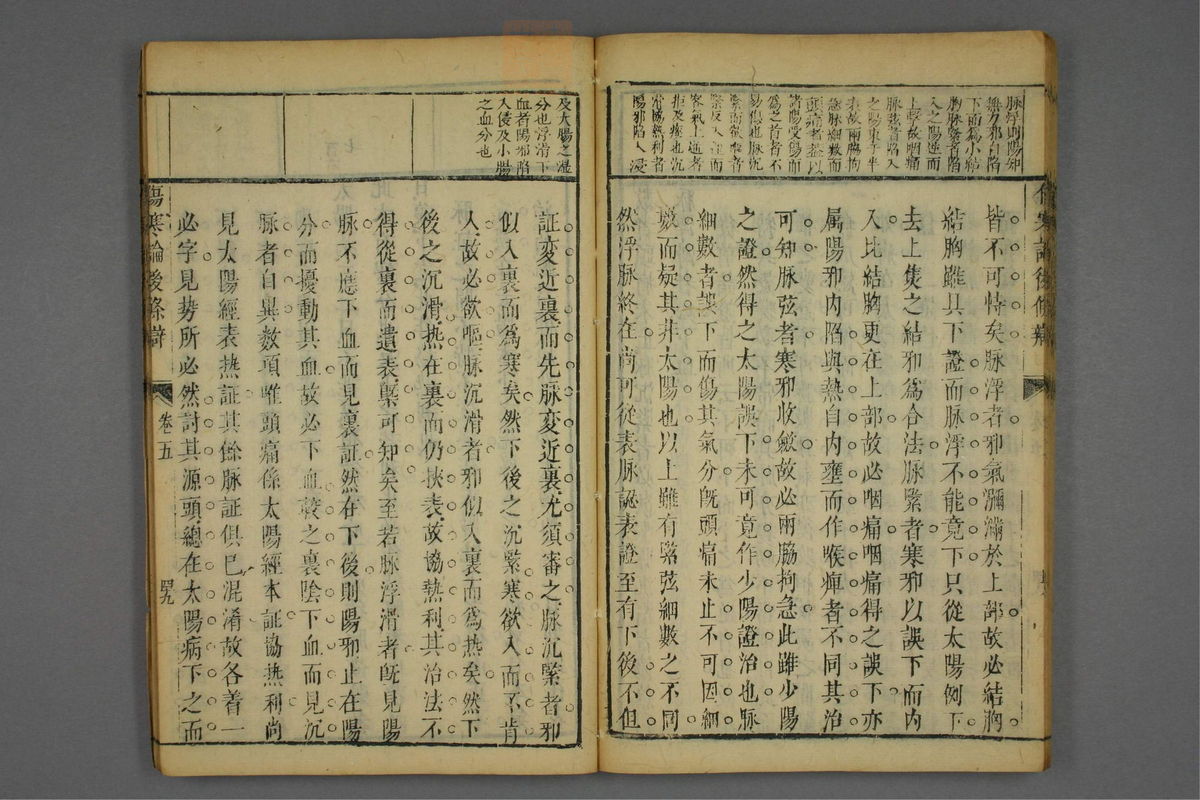 脉浮則陽邪
無力邪自陷
下而為小結
胸脉緊者陷
入之陽逆而
上擊故咽痛
脉弦者陷入
之陽束于半
表故兩脇拘
急脉細數而
頭痛者答以
諸陽受傷而
為之首者不
易得也脉沉
緊而嘔者
緊反入裏而
客氣上逆者
拒及痰也沉
滑協熱利者
陽邪陷入浸
皆不可恃矣脉浮者邪氣瀰滿於上部故必結胸
結胸雖具下證而脉浮不能竟下只從太陽例下
去上焦之結邪為合法脉緊者寒邪以誤下而內
入比結胸更在上部故必咽痛咽痛得之誤下亦
屬陽邪內陷與熱自內壅而作喉痺者不同其治
可知脉弦者寒邪收斂故必兩脇拘急此雖少陽
之證然得之太陽誤下未可竟作少陽證治也脉
細數者誤下而傷其氣分旣頭痛未止不可因細
數而疑其非太陽也以上雖有緊弦細數之不同
然浮脉終在尚可從表脉認表證至有下後不但
傷寒論後條辯
及大腸之濕
分也浮滑下
血者陽邪陷
入侵及小腸
之血分也
証変近裏而先脉変近裏尤須審之脉沉緊者邪
似入裏而為寒矣然下後之沉緊寒欲入而不肯
人故必欲嘔脉沉滑者邪似入裏而為热矣然下
後之沉滑热在裏而仍挾表故協热利其治法不
得從裏而遺表槩可知矣至若脉浮滑者旣見陽
脉不應下血而見裏証然在下後則陽邪止在陽
分而擾動其血故必下血較之裏陰下血而見沉
脉者自異数項唯頭痛係太陽經本証協热利尚
見太陽經表热証其餘脉証俱已混淆故各着一
必字見势所必然討其源頭總在太陽病下之而
傷寒論後條辯
卷五
四十九